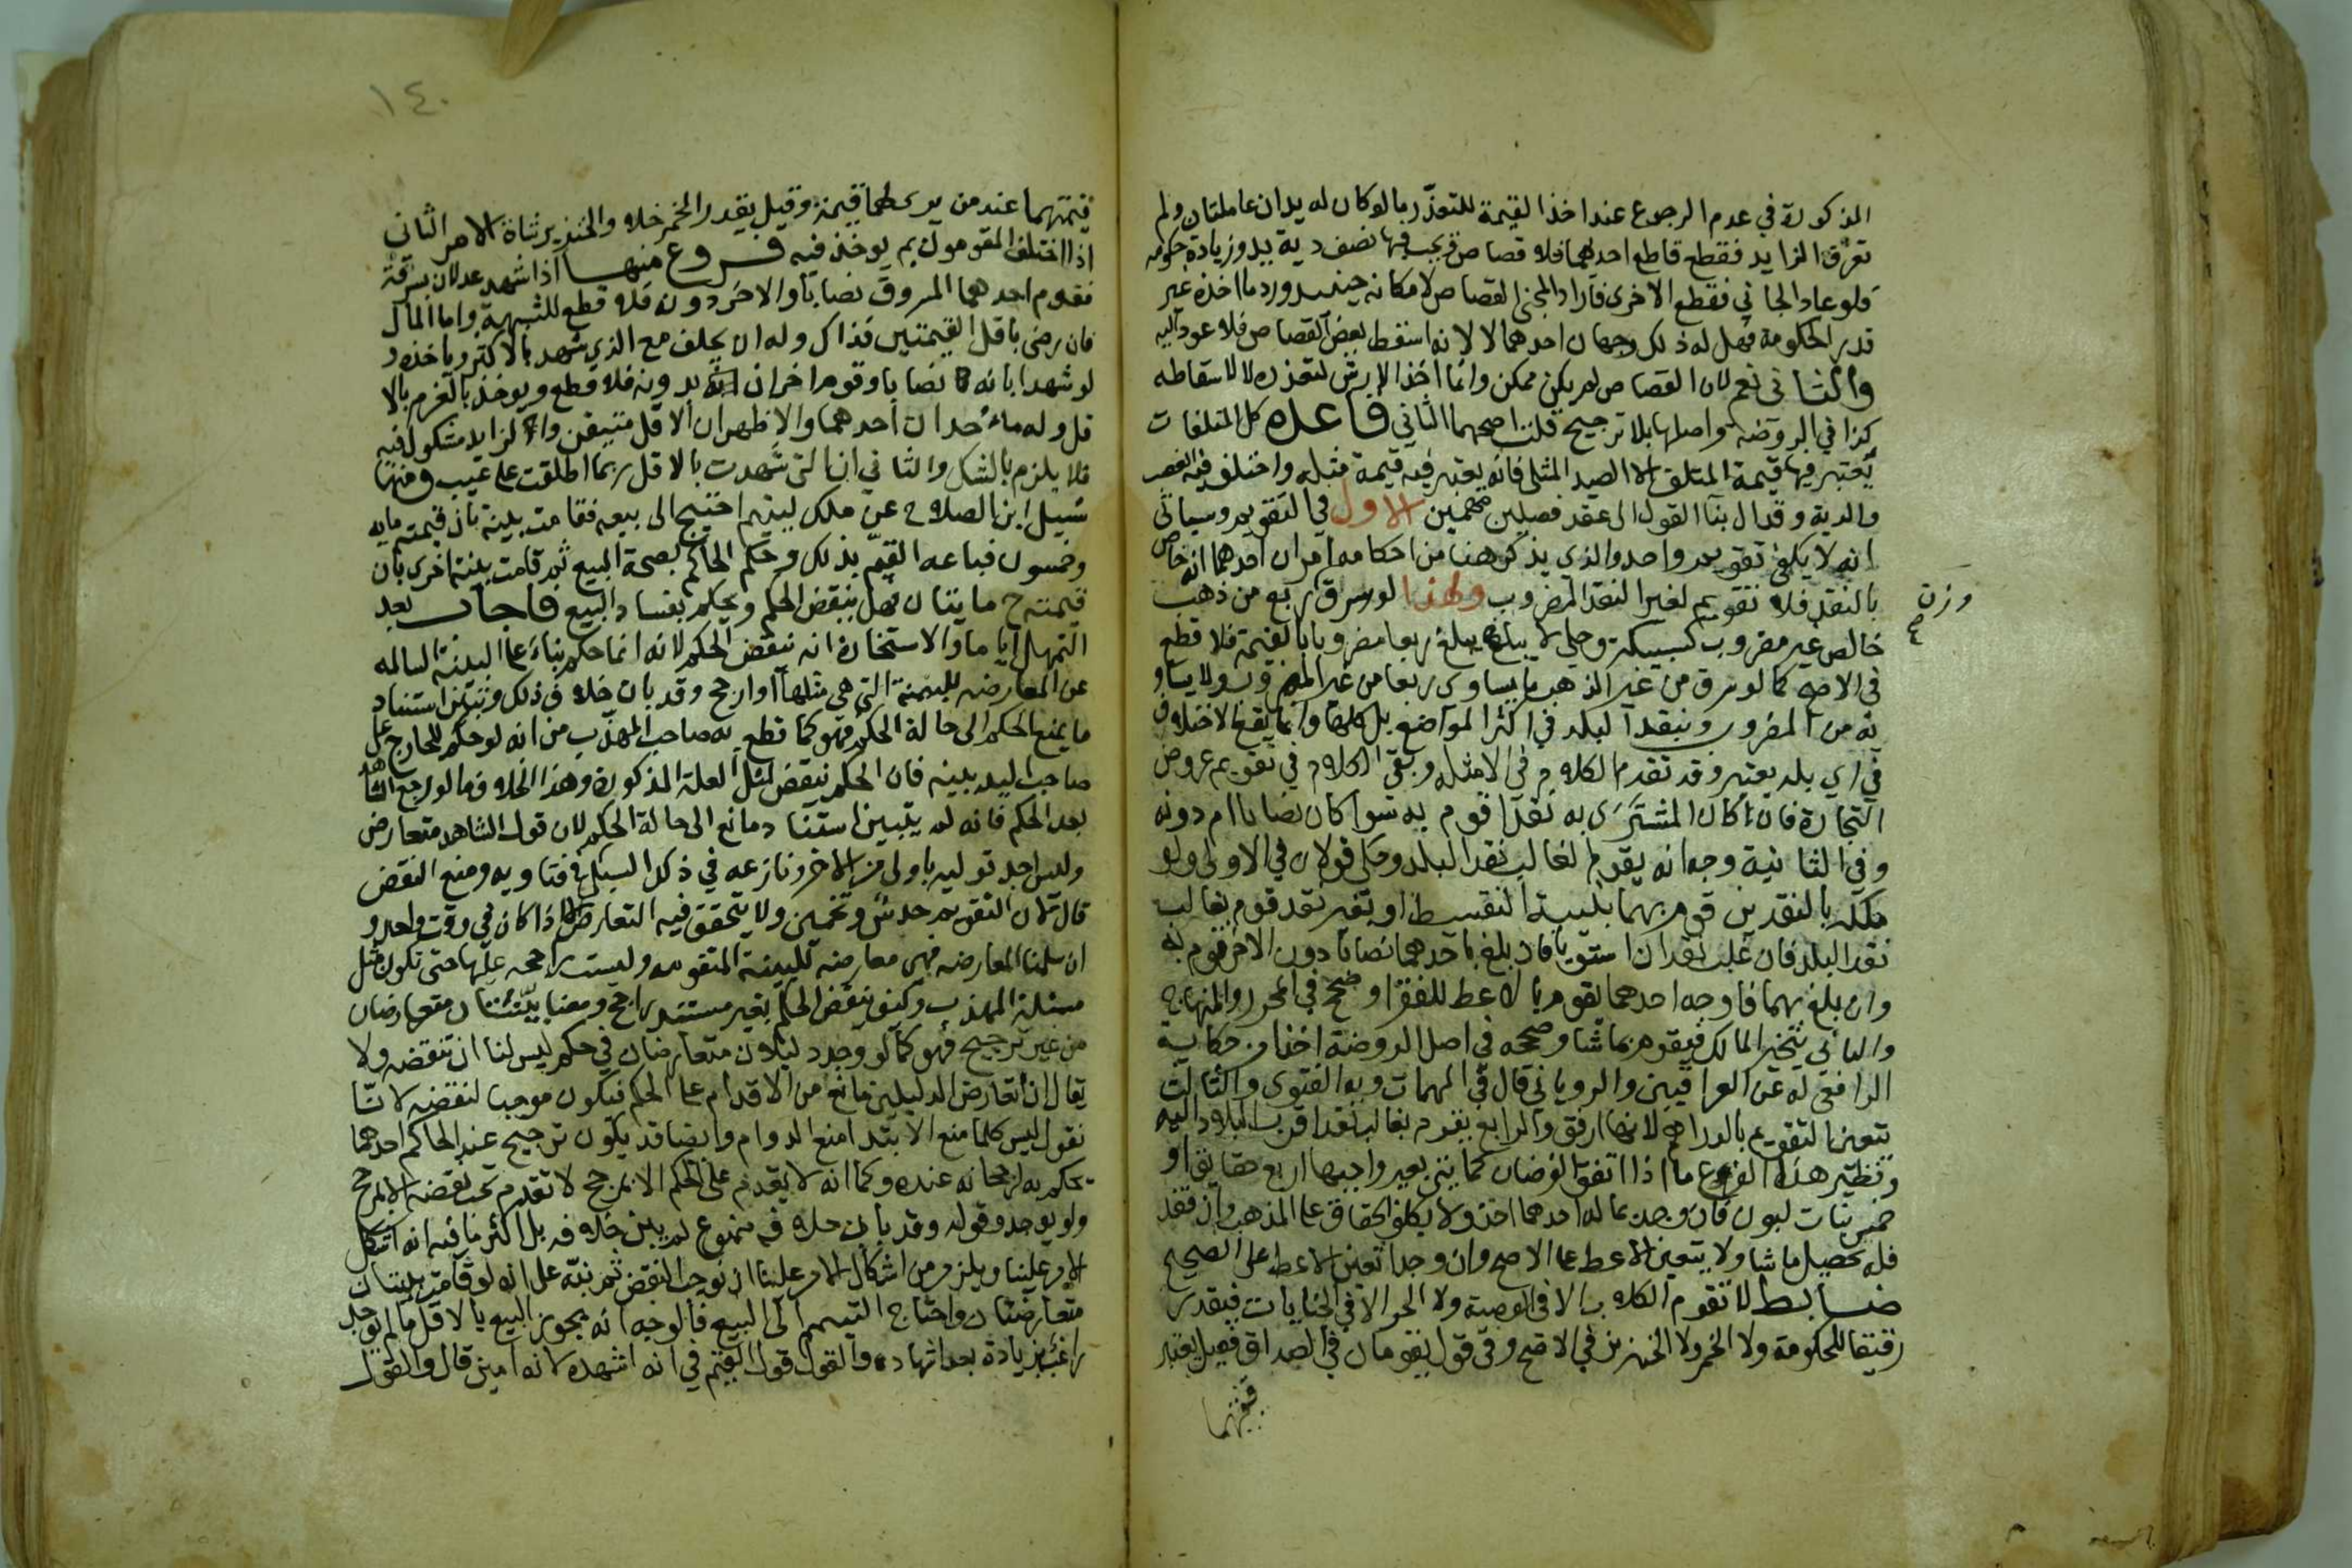 المذكورة في عدم الرجوع عند اخذ القيمة للتعذر بما لو كان له يدان عاملتان ولم
تعرف الزايد فقطع قاطع احدهما فلا قصاص وتجب فيها نصف دية يد وزيادة حكومة
فلو عاد الجاني فقطع الاخرى فاراد المجني القصاص لامكانه حينئذ ورد ما اخذه غير
قدر الحكومة فهل له ذلك وجهان احدهما لا لانه اسقط بعض القصاص فلا عود اليه
والثاني نعم لان القصاص لم يكن ممكن وانما اخذ الارش لتعذره لا لاسقاطه
كذا في الروضة واصلها بلا ترجيح قلت اصحهما الثاني قاعدة كل المتلفات
يعتبر فيها قيمة المتلف الا الصيد المثلي فانه يعتبر فيه قيمة مثله واختلف فيه الغصب
والدية وقد ال بنا القول الى عقد فصلين مهمين الاول في التقويم وسياتي
انه لا يكفي تقويم واحد والذي يذكر هنا من احكامه امران احدهما انه خاص
بالنقد فلا تقويم لغير النقد المضروب ولهذا لو سرق ربع من ذهب
وزن
خالص غير مضروب كسبيكة وحلي لا يبلغ ربعا مضروبا بالقيمة فلا قطع
في الاصح كما لو سرق من غير الذهب ما يساوي ربعا من غير المضروب ولا يساو
يه من المضروب وبنقد البلد في اكثر المواضع بل كلها وانما يقع الاختلاف
في اي بلد يعتبر وقد تقدم الكلام في الامثلة وبقي الكلام في تقويم عروض
التجارة فان كان المشترى به نقدا قوم به سوا كان نصابا ام دونه
وفي الثانية وجه انه يقوم لغالب نقد البلد وحكي قولان في الاولى ولو
ملكه بالنقدين قوم بهما بنسبة التقسيط او بغير نقد قوم بغالب
نقد البلد فان غلب نقدان استويا فان بلغ باحدهما نصابا دون الاخر قوم به
وان بلغ بهما فاوجه احدهما يقوم بالاغبط للفقرا وصحح في المحرر والمنهاج
والثاني يتخير المالك فيقوم بما شا وصححه في اصل الروضة اخذا من حكاية
الرافعي له عن العراقيين والروياني قال في المهمات وبه الفتوى والثالث
يتعين التقويم بالدراهم لانها ارفق والرابع يقوم بغالب نقد اقرب البلاد اليه
ونظير هذا الفرع ما اذا اتفق الفرضان كمايتي بعير واجبها اربع حقايق او
خمس بنات لبون فان وجد بماله احدهما اخذ ولا يكلف الحقاق على المذهب وان فقد
فله تحصيل ما شا ولا يتعين الاغبط على الاصح وان وجدا تعين الاغبط على الصحيح
ضابط لا تقوم الكلاب الا في الوصية ولا الحر الا في الجنايات فيقدر
رقيقا للحكومة ولا الخمر ولا الخنزير في الاصح وفي قول يقومان في الصداق فقيل يعتبر
قيمتهما
١٤٠
قيمتهما عند من يرى لهما قيمة وقيل يقدر الخمر خلا والخنزير شاة الامر الثاني
اذا اختلف المقومون بم يوخذ فيه فروع منها اذا شهد عدلان بسرقة
فقوم احدهما المسروق نصابا والاخر دون فلا قطع للشبهة واما المال
فان رضي باقل القيمتين فذاك وله ان يحلف مع الذي شهد بالاكثر وياخذه و
لو شهدا بانه نصابا وقوم اخران بدونه فلا قطع ويوخذ بالغرم بالا
قل وله ماخذان احدهما والاظهر ان الاقل متيقن والزايد مشكوك فيه
فلا يلزم بالشك والثاني ان التي شهدت بالاقل ربما اطلعت على عيب ومنها
سئيل ابن الصلاح عن ملك ليتيم احتيج الى بيعه فقامت بينة بان قيمته مايه
وخمسون فباعه القيم بذلك وحكم الحاكم بصحة البيع ثم قامت بينة اخرى بان
قيمته ح مايتان فهل ينقض الحكم ويحكم بفساد البيع فاجاب بعد
التمهل اياما والاستخارة انه ينقض الحكم لانه انما حكم بناء على البينة السالمه
عن المعارضه للبينة التي هي مثلها او ارجح وقد بان خلاف ذلك وتبين استناد
ما يمنع الحكم الى حالة الحكم فهو كما قطع به صاحب المهذب من انه لو حكم للخارج على
صاحب اليد ببينه فان الحكم ينقض لمثل العلة المذكورة وهذا بخلاف ما لو رجع الشاهد
بعد الحكم فانه لم يتبين استناد مانع الى حالة الحكم لان قول الشاهد متعارض
وليس احد قوليه باولى من الاخر ونازعه في ذلك السبكي في فتاويه ومنع النقض
قال لان التقويم حدس وتخمين ولا يتحقق فيه التعارض الا اذا كان في وقت واحد و
ان سلمنا المعارضه فهي معارضه للبينة المتقدمه وليست راجحه عليها حتى تكون مثل
مسئلة المهذب وكيف ينقض الحكم بغير مستند راجح ومعنا بينتان متعارضان
من غير ترجيح فهو كما لو وجد دليلان متعارضان في حكم ليس لنا ان ننقضه ولا
يقال ان تعارض الدليلين مانع من الاقدام على الحكم فيكون موجبا لنقضه لانا
نقول ليس كلما منع الابتدا منع الدوام وايضا قد يكون ترجيح عند الحاكم احدهما
حكم به لرجحانه عنده وكما انه لا يقدم على الحكم الا بمرجح لا تقدم نحن نقضه الا بمرجح
ولم يوجد وقوله وقد بان خلافه ممنوع لم يبين خلافه بل اكثر ما فيه انه اشكل
الامر علينا ويلزم من اشكال الامر علينا ان نوجب النقض ثم نبه على انه لو قامت بينتان
متعارضتان واحتاج اليتيم الى البيع فالوجه انه يجوز البيع بالاقل ما لم يوجد
راغب بزيادة بعد اشهاده والقول قول القيم في انه اشهده لانه امين قال والقول